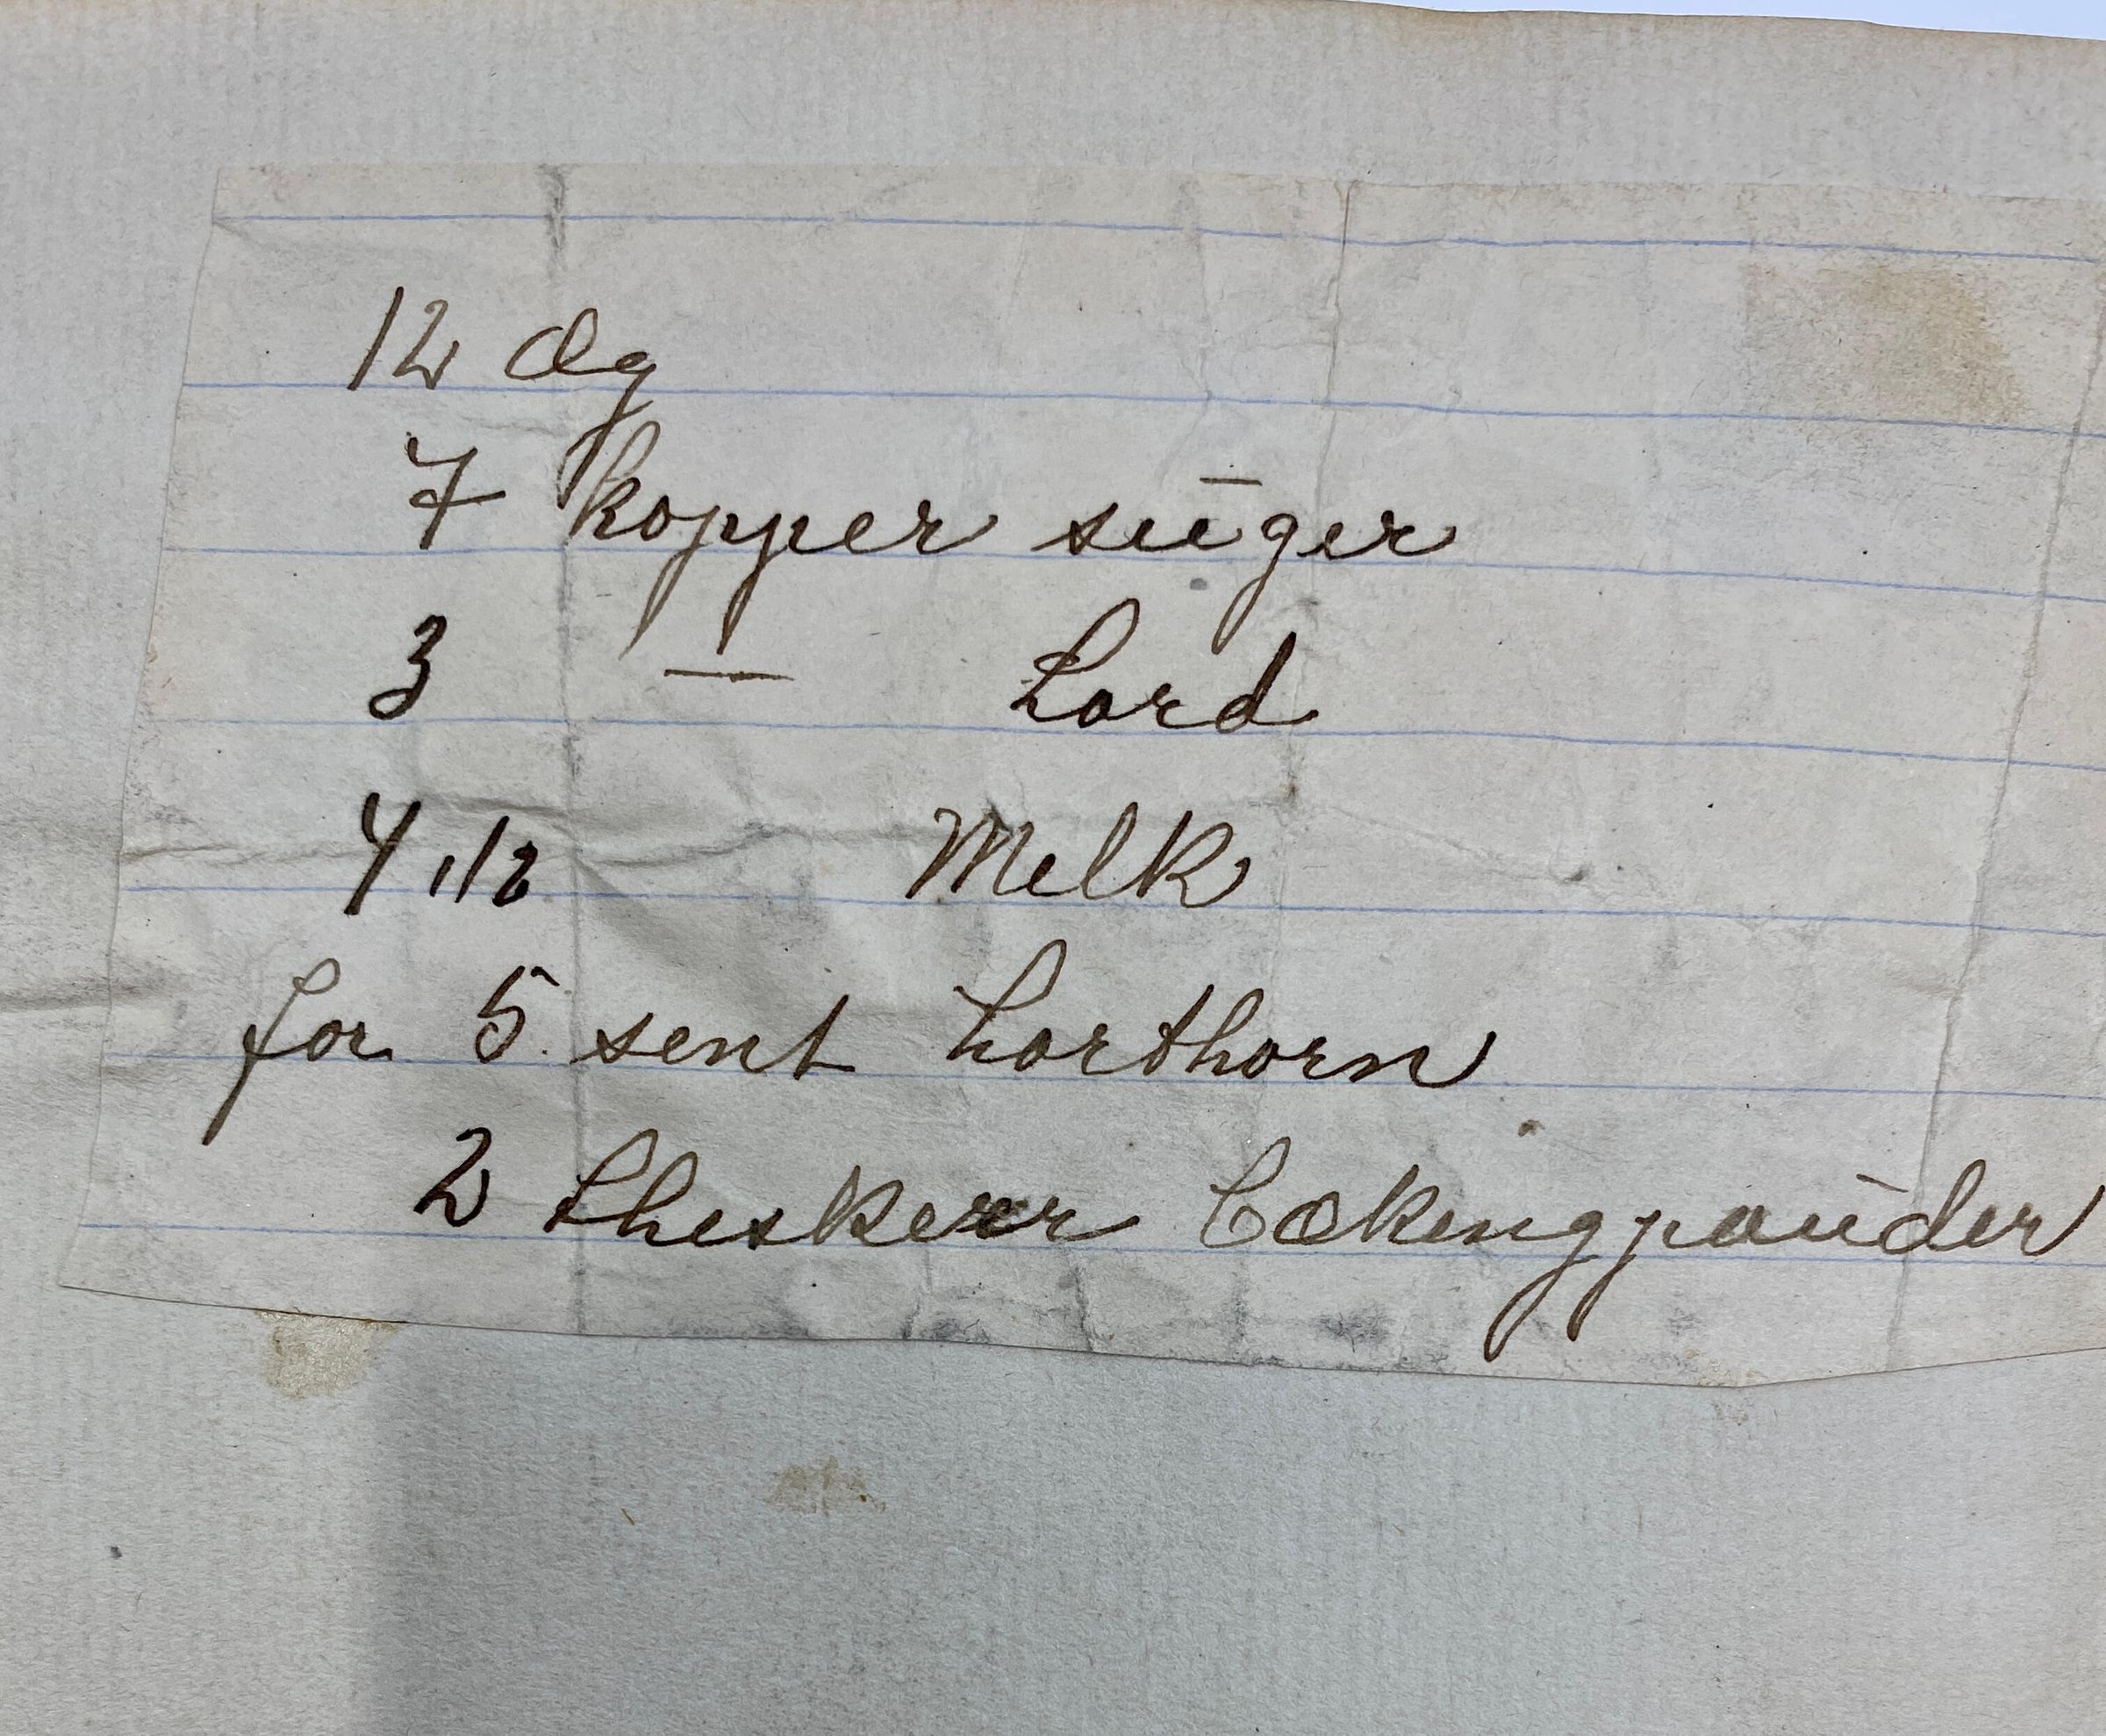 12 Æg
7 kopper suger
3 — Lard
4 1/2 Melk
for 5 sent horthorn
2 theskeer bækengpauder